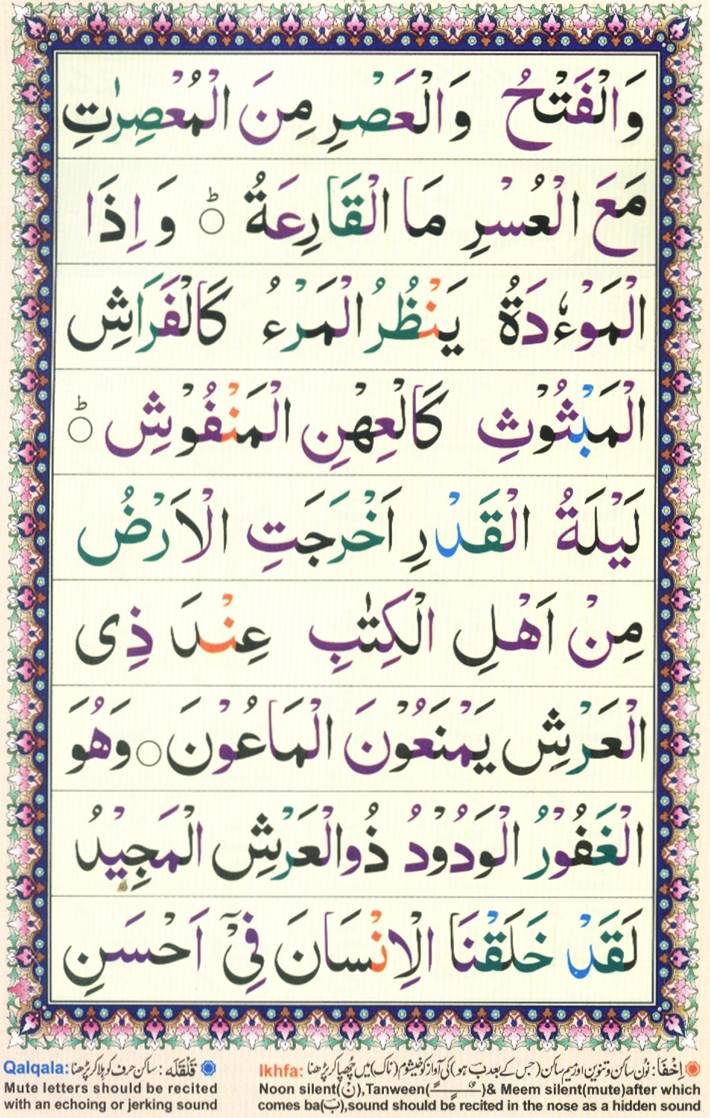 وَالْفَتْحُ وَالْعَصْرِ مِنَ الْمُعْصِرٰتِ
مَعَ الْعُسْرِ مَا الْقَارِعَةُ ۞ؕ وَاِذَا
الْمَوْءٗدَةُ يَنْظُرُ الْمَرْءُ كَالْفَرَاشِ
الْمَبْثُوْثِ كَالْعِهْنِ الْمَنْفُوْشِ ○ؕ
لَيْلَةُ الْقَدْرِ اَخْرَجَتِ الْاَرْضُ
مِنْ اَهْلِ الْكِتٰبِ عِنْدَ ذِى
الْعَرْشِ يَمْنَعُوْنَ الْمَاعُوْنَ ○ وَهُوَ
الْغَفُوْرُ الْوَدُوْدُ ذُوالْعَرْشِ الْمَجِيْدُ
لَقَدْ خَلَقْنَا الْاِنْسَانَ فِىْٓ اَحْسَنِ
اِخْفَا: نون ساکن و تنوین اور میم ساکن (جس کے بعد بَ ہو) کی آواز کو خیشوم (ناک) میں چھپا کر پڑھنا
Ikhfa:
Noon silent(نْ),Tanween(ــًــٍــٌ)& Meem silent(mute)after which
comes ba(بَ),sound should be recited in the nose as a hidden sound
قَلْقَلَہ: ساکن حرف کو ہلا کر پڑھنا
Qalqala:
Mute letters should be recited
with an echoing or jerking sound